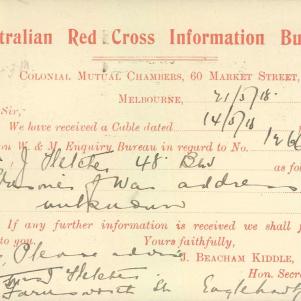 tralian Red Cross Information Bu
Colonial Mutual Chambers, 60 Market Street,
Melbourne, 21/5/18
Sir,
We have received a Cable dated 14/5/18
on W. & M. Enquiry Bureau in regard to No.
J Fletcher 48 Bn as fo
Prisoner of War address
unknown
If any further information is received we shall f
to you. Yours faithfully,
Please advise J. Beacham Kiddle,
Fletcher Hon. Secre
Farnsworth St Eaglehawk